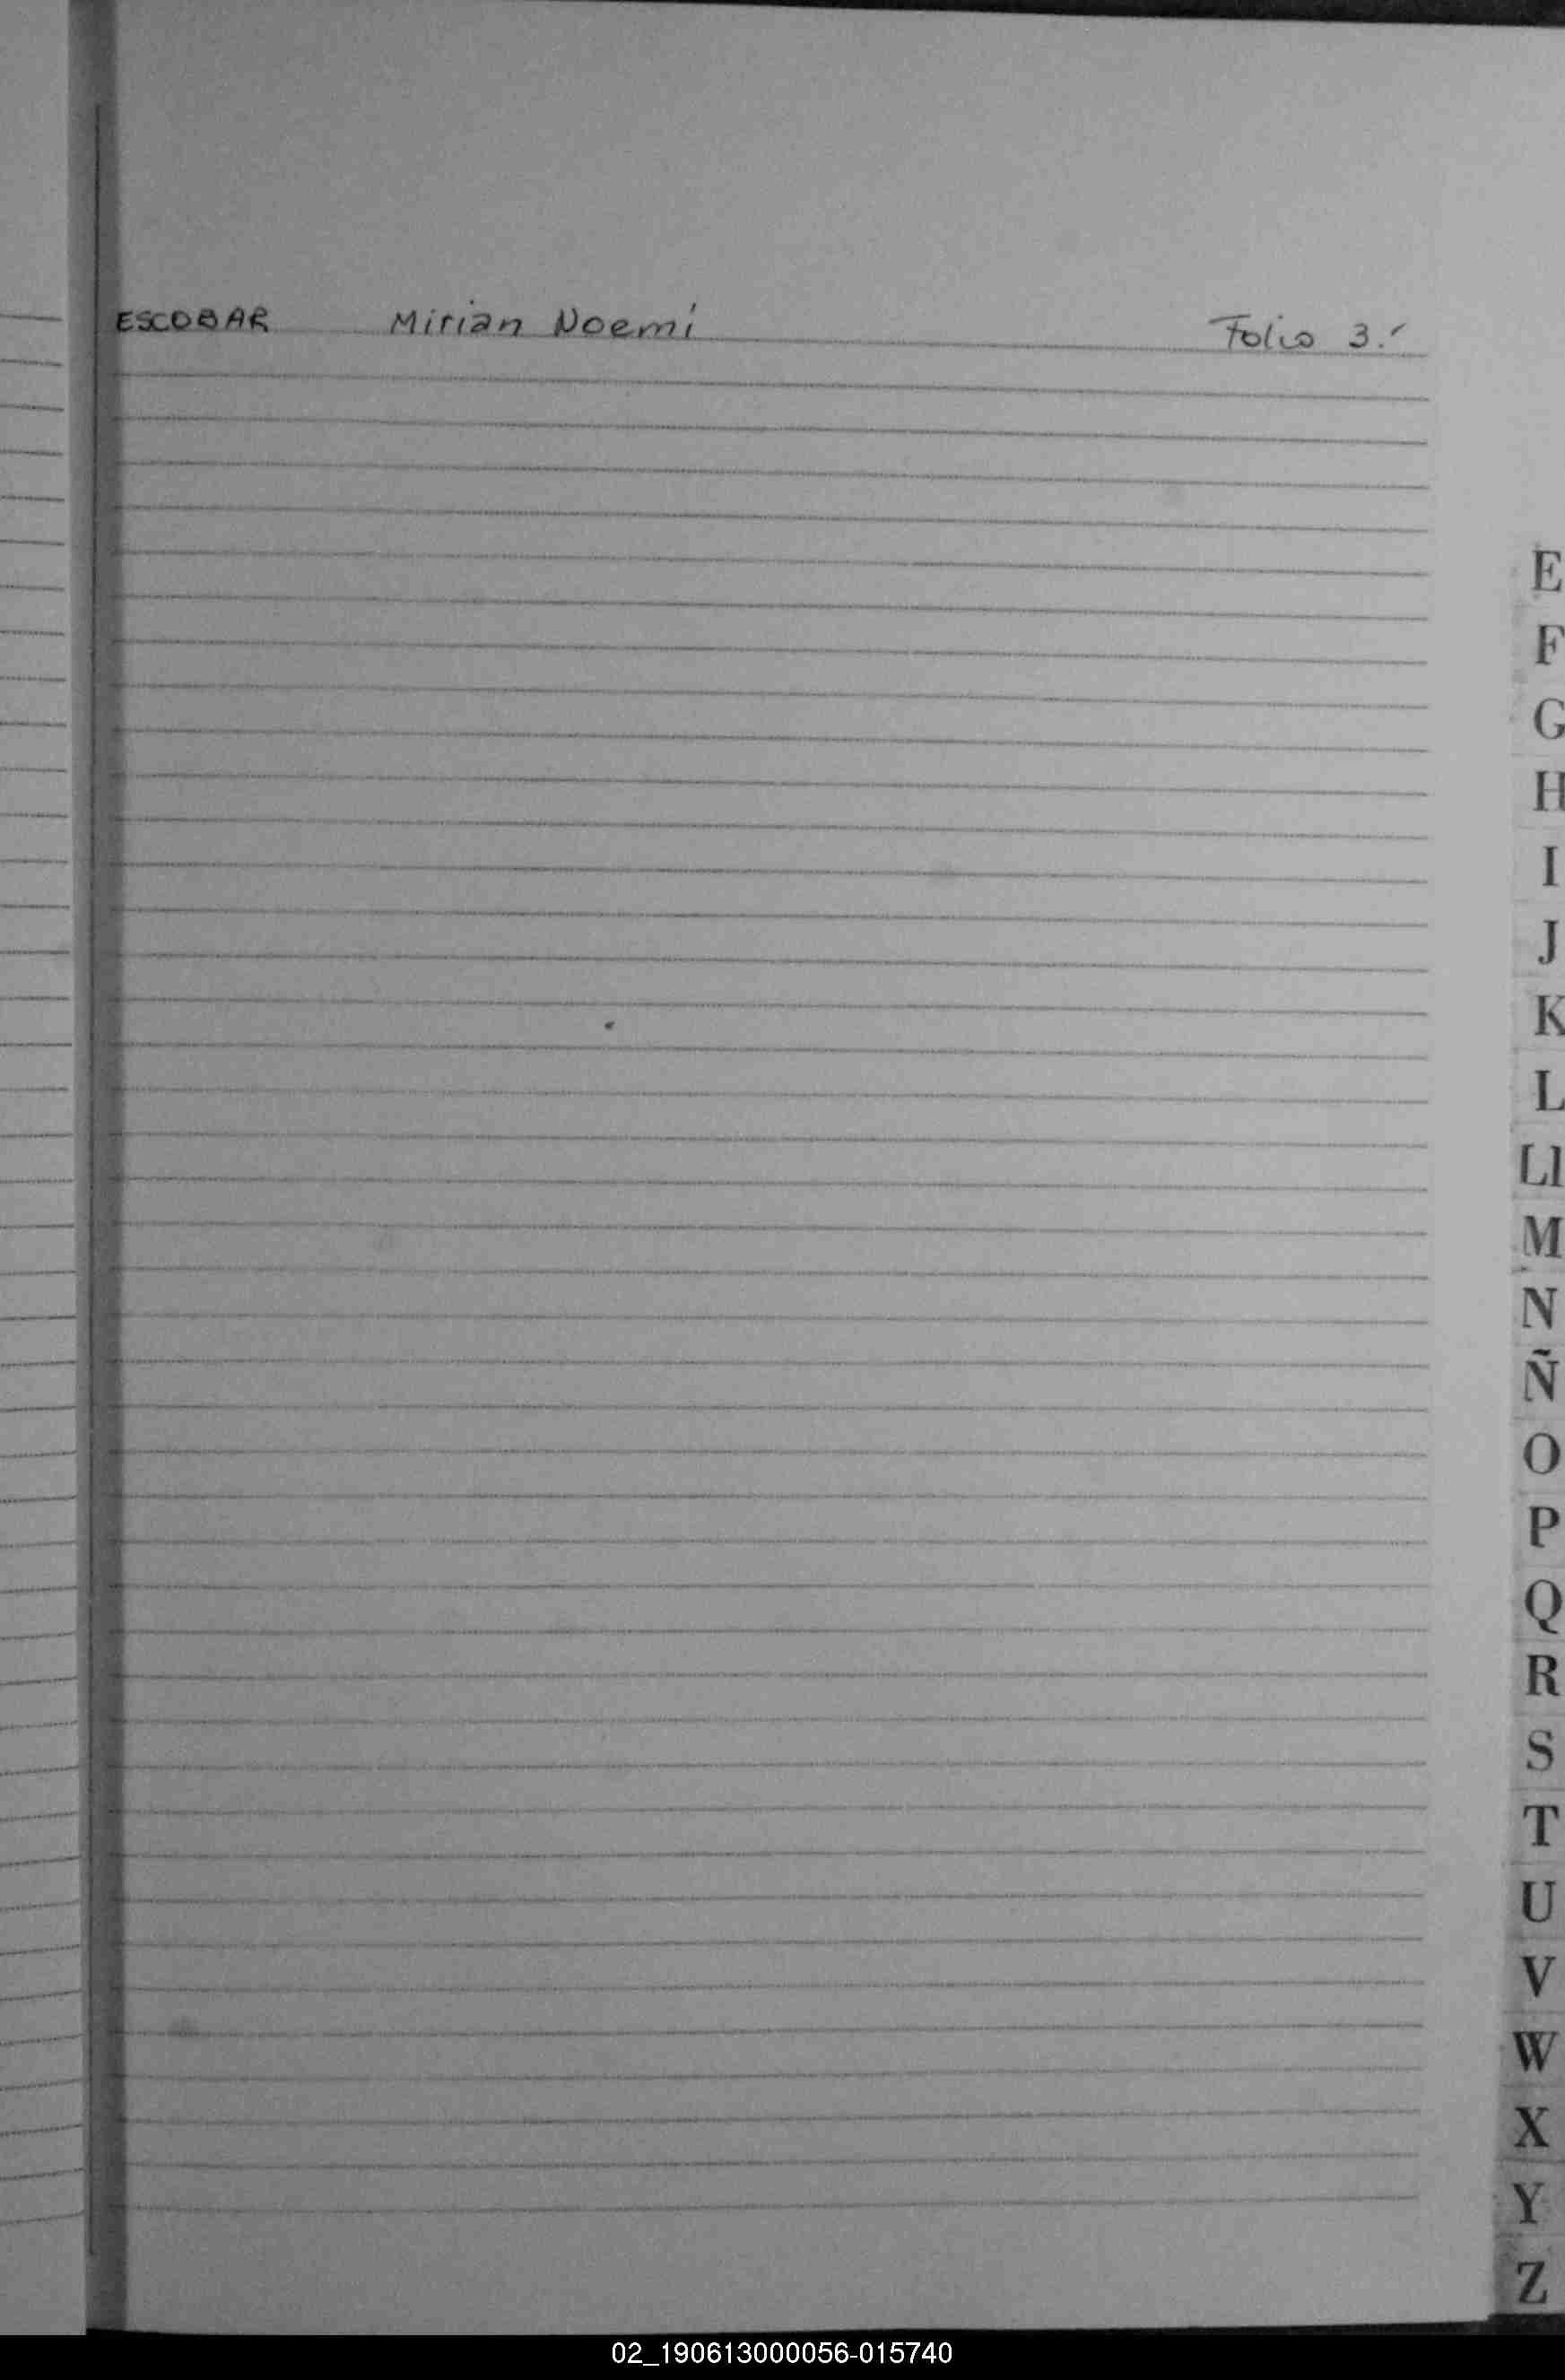 ESCOBAR Mirian Noemí Folio 3.
E
F
G
H
I
J
K
L
Ll
M
N
Ñ
O
P
Q
R
S
T
U
V
W
X
Y
Z
02_190613000056-015740